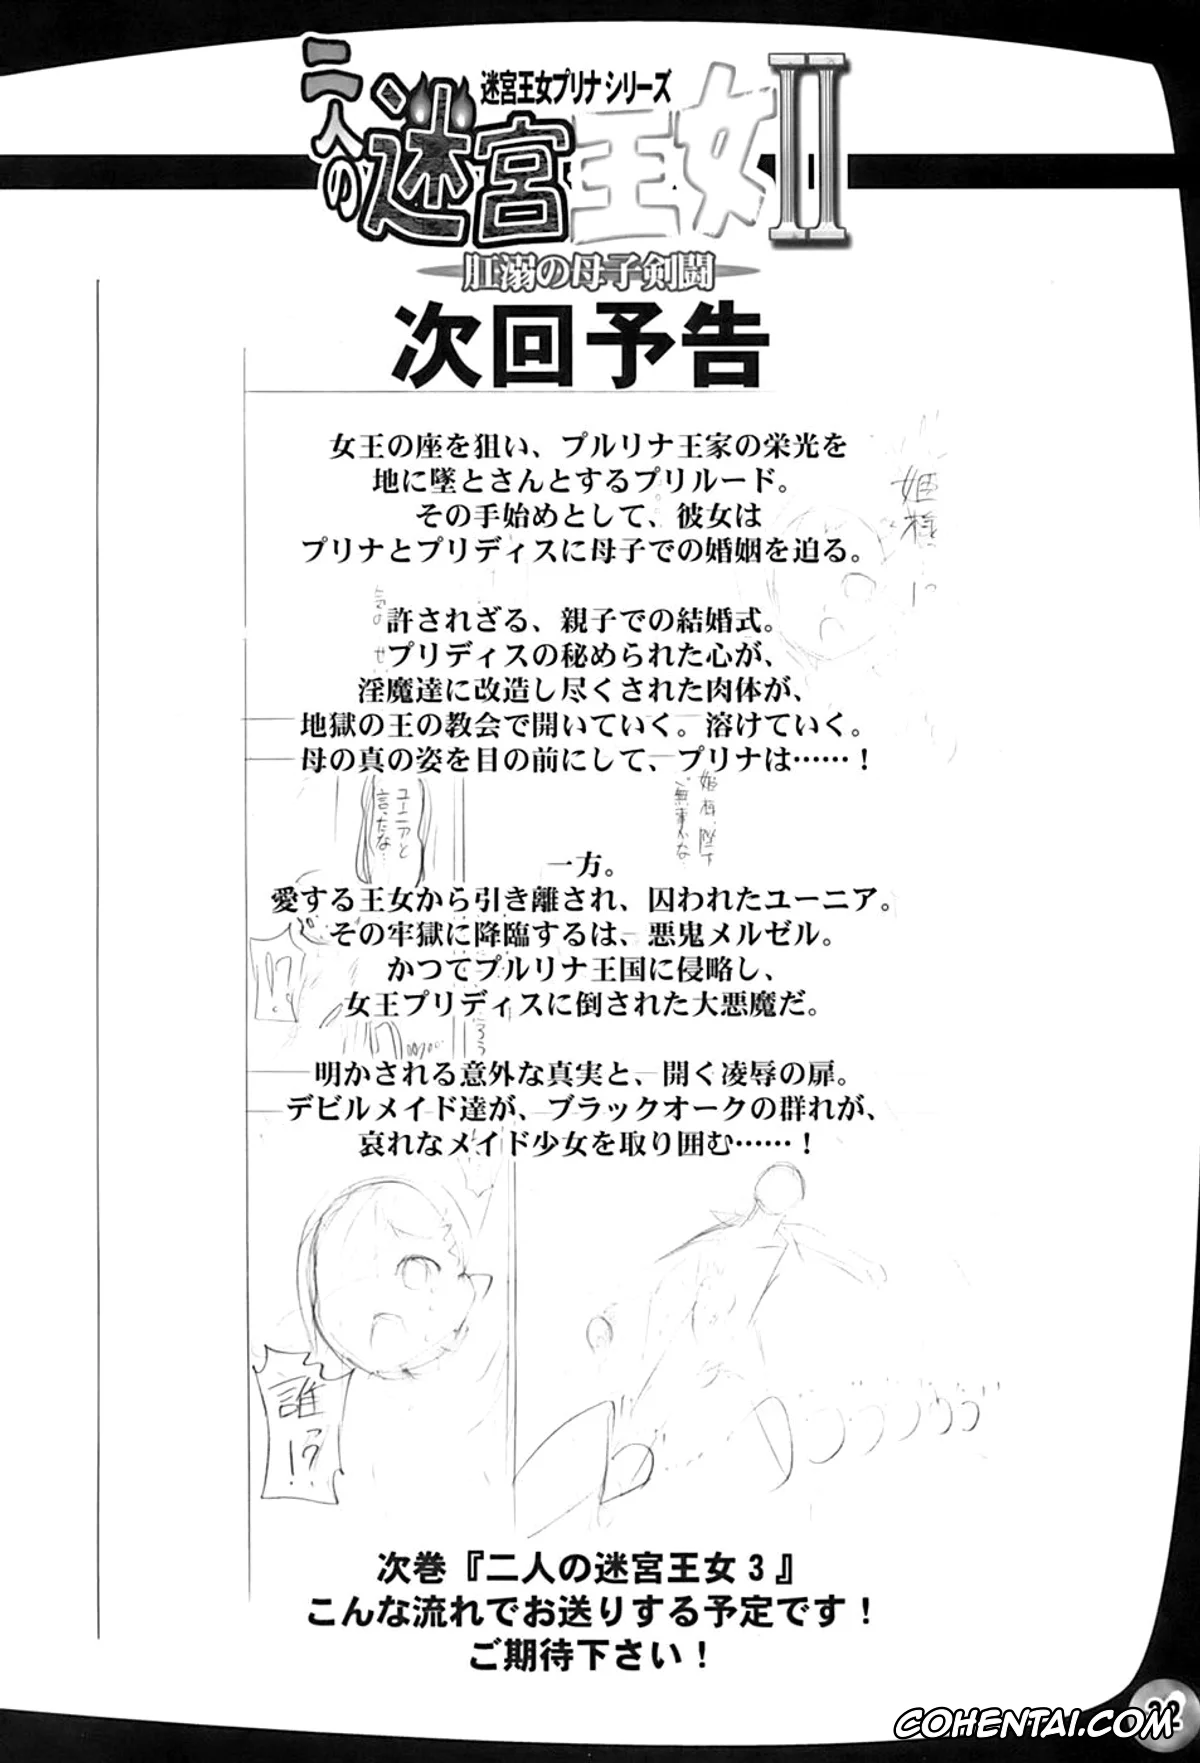 迷宮王女プリナシリーズ
二人の迷宮王女II
肛溺の母子剣闘
次回予告
女王の座を狙い、プルリナ王家の栄光を
地に墜とさんとするプリルード。
その手始めとして、彼女は
プリナとプリディスに母子での婚姻を迫る。
許されざる、親子での結婚式。
プリディスの秘められた心が、
淫魔達に改造し尽くされた肉体が、
地獄の王の教会で開いていく。溶けていく。
母の真の姿を目の前にして、プリナは……！
一方。
愛する王女から引き離され、囚われたユーニア。
その牢獄に降臨するは、悪鬼メルゼル。
かつてプルリナ王国に侵略し、
女王プリディスに倒された大悪魔だ。
明かされる意外な真実と、開く凌辱の扉。
デビルメイド達が、ブラックオークの群れが、
哀れなメイド少女を取り囲む……！
姫様!?
姫様、陛下
ご無事かな…
ユーニアと
言ったな…
!?
誰!?
次巻『二人の迷宮王女3』
こんな流れでお送りする予定です！
ご期待下さい！
COHENTAI.COM